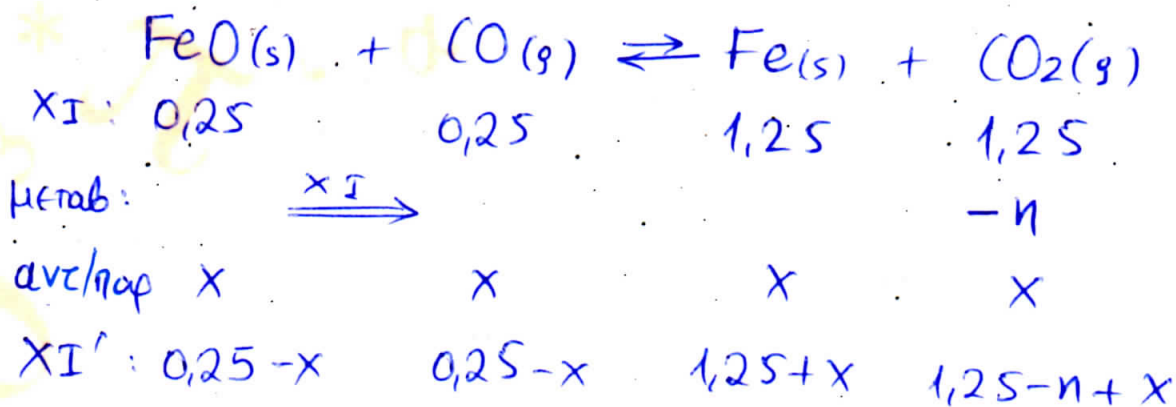 FeO(s) + CO(g) ⇄ Fe(s) + CO2(g)
ΧΙ: 0,25 0,25 1,25 1,25
μεταβ: ΧΙ ⟹ -n
αντ/παρ x x x x
ΧΙ': 0,25-x 0,25-x 1,25+x 1,25-n+x